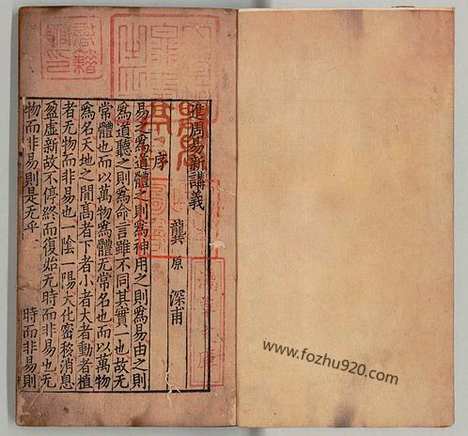 進周易新講義
龔原 深甫
序
易之爲道體之則爲神用之則爲易由之則
爲道聽之則爲命言雖不同其實一也故无
常體也而以萬物爲體无常名也而以萬物
爲名天地之間高者下者小者大者動者植
者无物而非易也一陰一陽大化密移消息
盈虛新故不停終而復始无時而非易也无
物而非易則是无乎 時而非易則
www.fozhu920.com